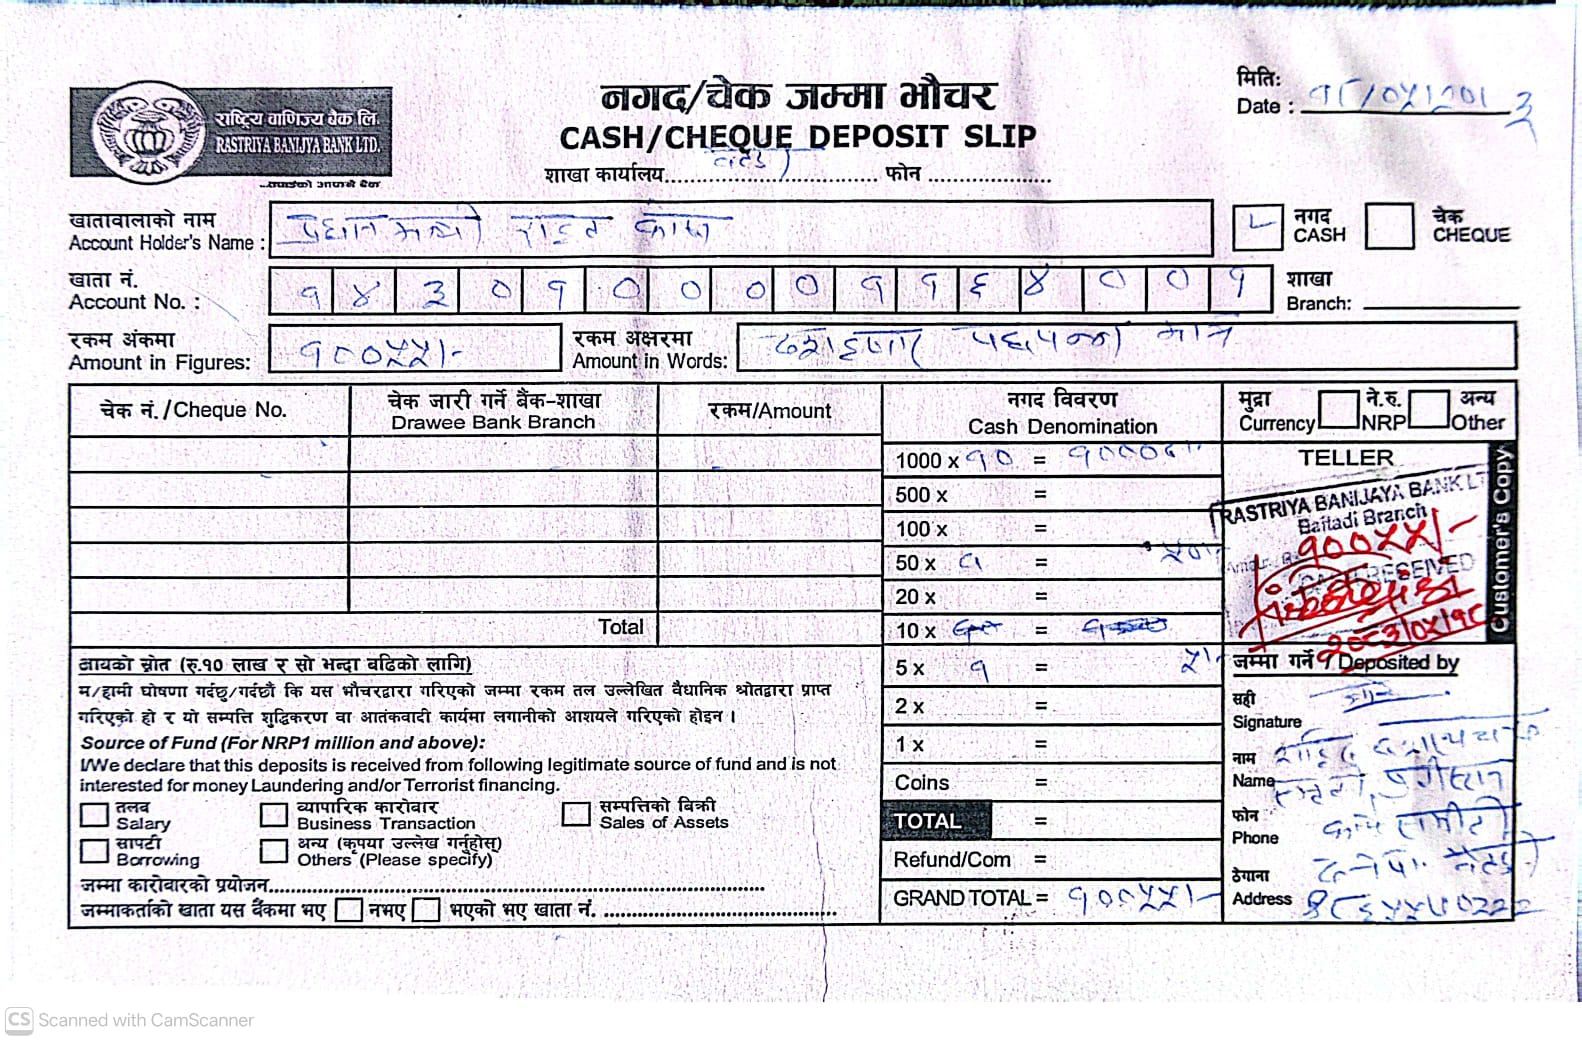 राष्ट्रिय वाणिज्य बैंक लि.
RASTRIYA BANIJYA BANK LTD.
...तपाईंको आफ्नै बैंक
नगद/चेक जम्मा भौचर
CASH/CHEQUE DEPOSIT SLIP
मितिः
Date :
शाखा कार्यालय.......................... फोन ...................
खातावालाको नाम
Account Holder's Name :
राहत कोष
नगद
CASH
चेक
CHEQUE
खाता नं.
Account No. :
१ ४ ३ ० १ ० ० ० ० १ १ ६ ४ ० ० १
शाखा
Branch:
रकम अंकमा
Amount in Figures:
१००५५।-
रकम अक्षरमा
Amount in Words:
मात्र
चेक नं./Cheque No.
चेक जारी गर्ने बैंक-शाखा
Drawee Bank Branch
रकम/Amount
नगद विवरण
Cash Denomination
मुद्रा
Currency
ने.रु.
NRP
अन्य
Other
1000 x १० = १००००।-
500 x =
100 x =
50 x १ = ५०।-
20 x =
10 x =
5 x १ = ५।-
2 x =
1 x =
Coins =
TOTAL =
Refund/Com =
GRAND TOTAL = १००५५।-
Total
TELLER
Customer's Copy
RASTRIYA BANIJAYA BANK LT
Baitadi Branch
१००५५।-
CASH RECEIVED
आयको स्रोत (रु.१० लाख र सो भन्दा बढिको लागि)
म/हामी घोषणा गर्दछु/गर्दछौं कि यस भौचरद्वारा गरिएको जम्मा रकम तल उल्लेखित वैधानिक श्रोतद्वारा प्राप्त
गरिएको हो र यो सम्पत्ति शुद्धिकरण वा आतंकवादी कार्यमा लगानीको आशयले गरिएको होइन ।
Source of Fund (For NRP1 million and above):
I/We declare that this deposits is received from following legitimate source of fund and is not
interested for money Laundering and/or Terrorist financing.
तलब
Salary
व्यापारिक कारोबार
Business Transaction
सम्पत्तिको बिक्री
Sales of Assets
सापटी
Borrowing
अन्य (कृपया उल्लेख गर्नुहोस्)
Others (Please specify)
जम्मा कारोबारको प्रयोजन
जम्माकर्ताको खाता यस बैंकमा भए नभए भएको भए खाता नं.
जम्मा गर्ने Deposited by
सही
Signature
नाम
Name
फोन
Phone
ठेगाना
Address
CS Scanned with CamScanner